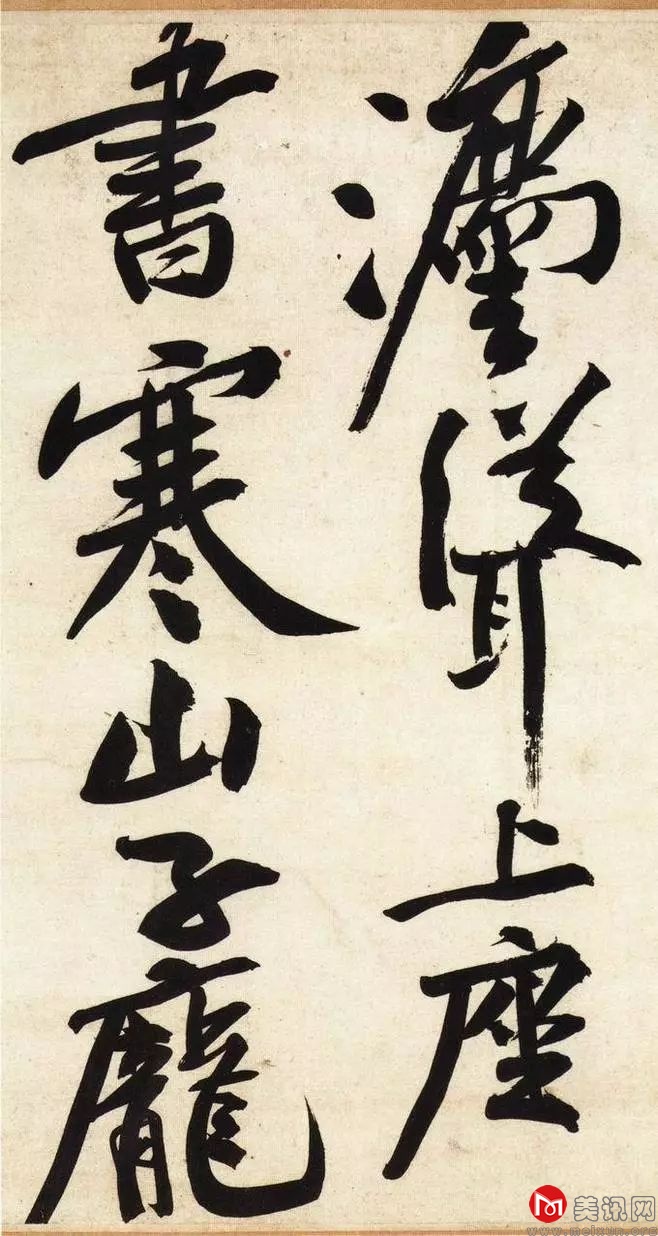 灋聳上座
書寒山子龐
美讯网
www.meixun.org